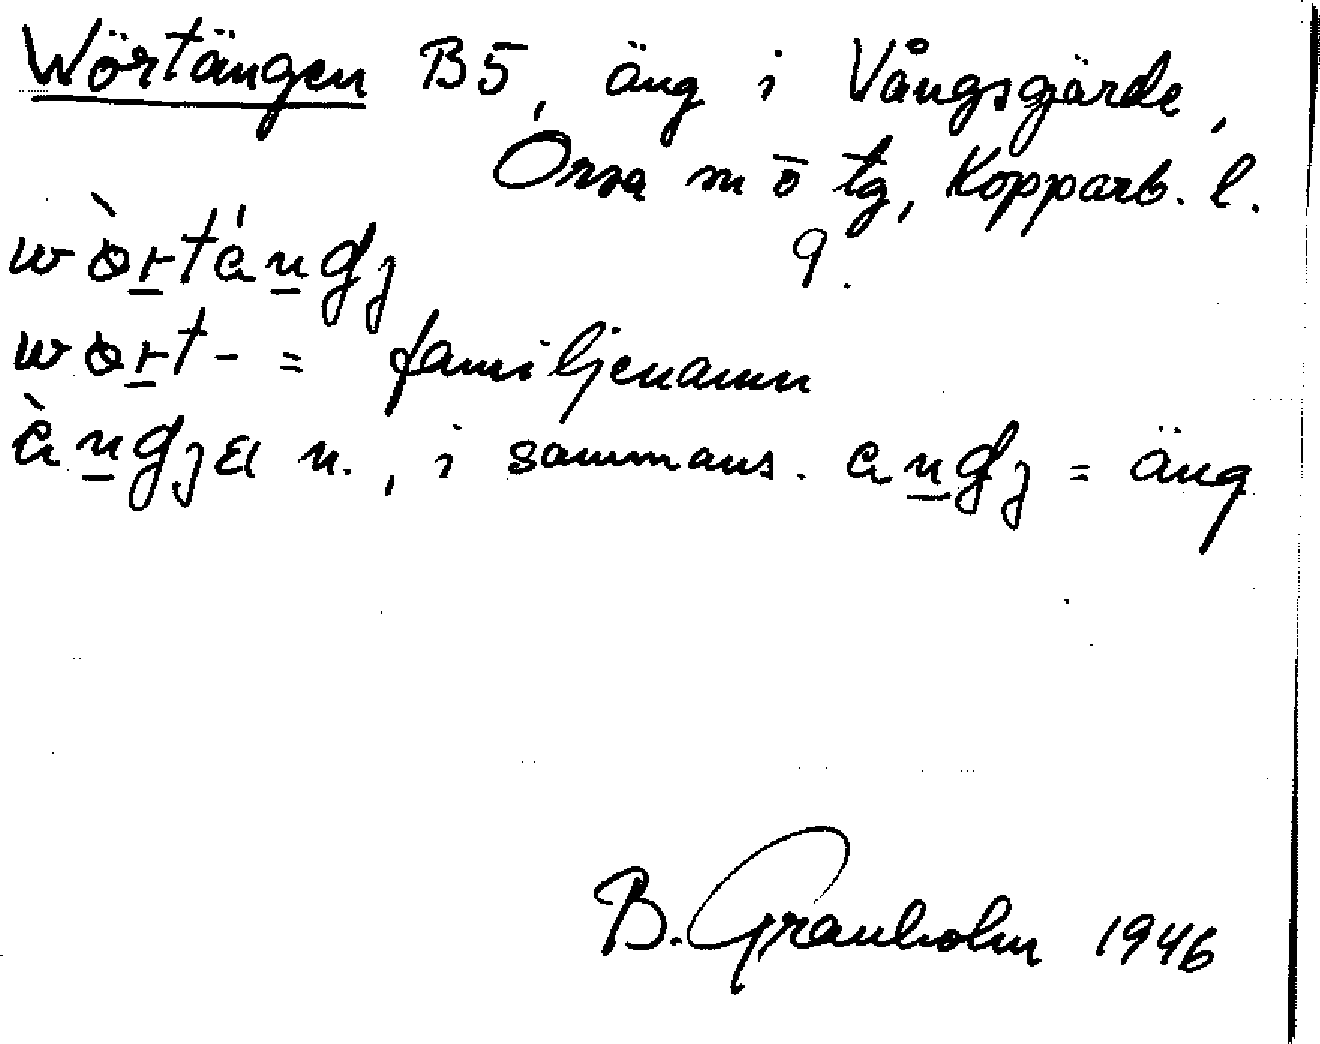 Wörtängen B5, äng i Vångsgjärde,
Orsa s m ö tg, Kopparb. l.
9.
wòrtáng̱j
wòrt- = familjenamn
àngja n., i sammans. angj = äng
B. Granholm 1946